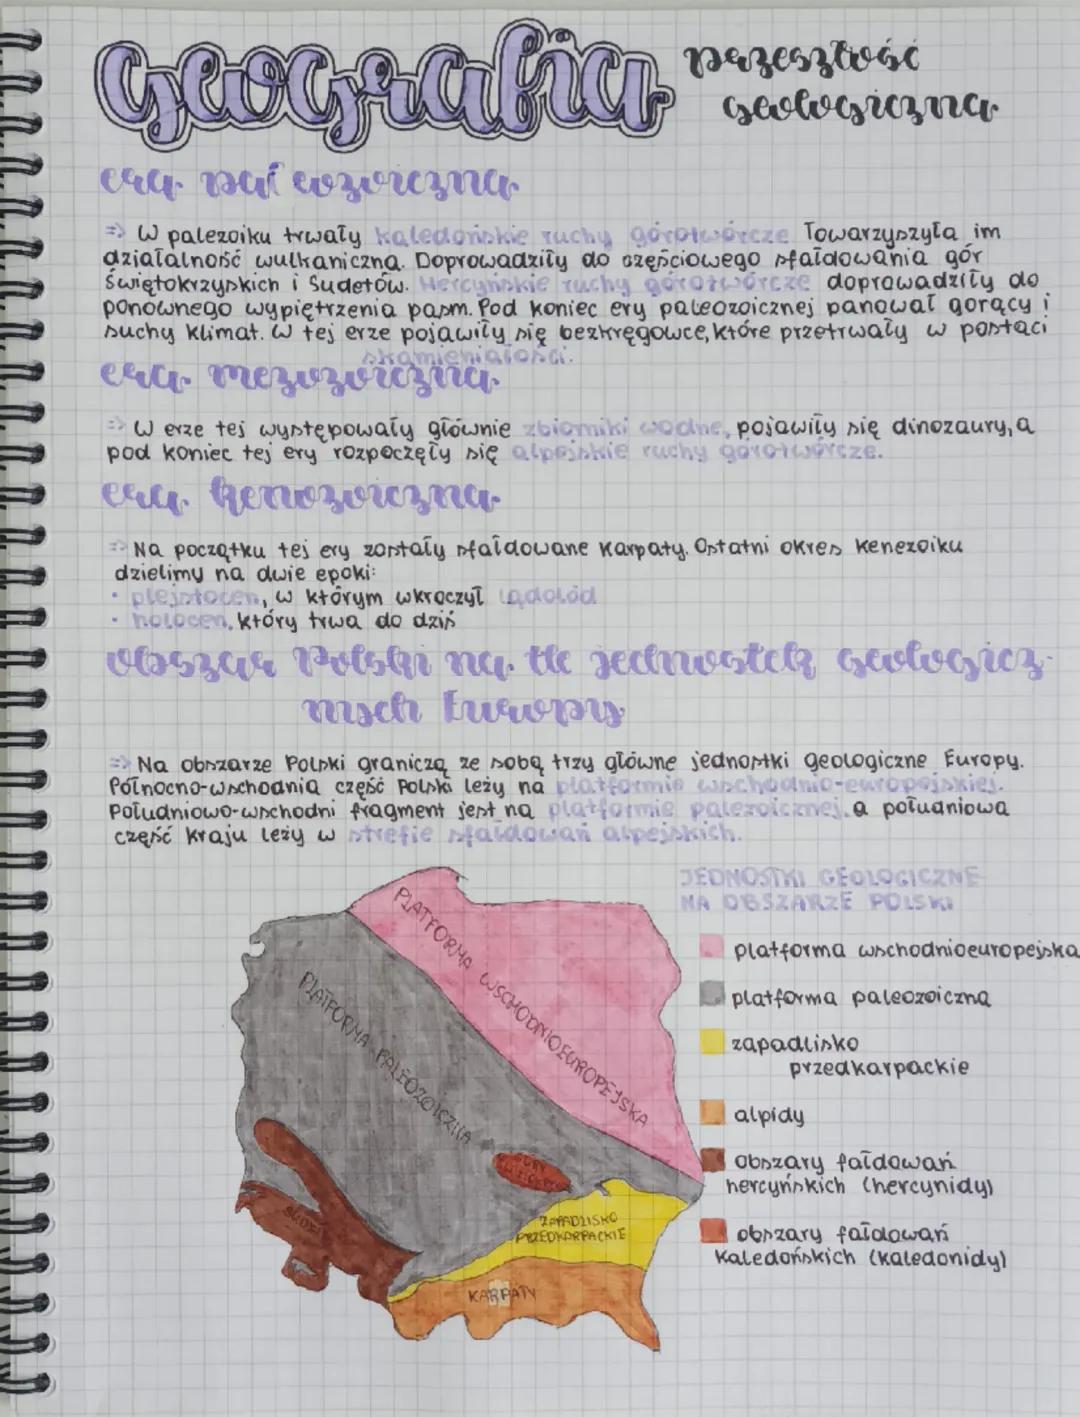 Geografia
przeszłość
geologiczna
era paleozoiczna
=> W palezoiku trwały kaledońskie ruchy górotwórcze Towarzyszyła im
działalność wulkaniczna. Doprowadziły do częściowego sfałdowania gór
Świętokrzyskich i Sudetów. Hercyńskie ruchy górotwórcze doprowadziły do
ponownego wypiętrzenia pasm. Pod koniec ery paleozoicznej panował gorący i
suchy klimat. W tej erze pojawiły się bezkręgowce, które przetrwały w postaci
skamieniałości.
era mezozoiczna
=> W erze tej występowały głównie zbiorniki wodne, pojawiły się dinozaury, a
pod koniec tej ery rozpoczęły się alpejskie ruchy górotwórcze.
era kenozoiczna
=> Na początku tej ery zostały sfałdowane Karpaty. Ostatni okres kenezoiku
dzielimy na dwie epoki:
• plejstocen, w którym wkroczył lądolód
• holocen, który trwa do dziś
obszar Polski na tle jednostek geologicz-
nych Europy
=> Na obszarze Polski graniczą ze sobą trzy główne jednostki geologiczne Europy.
Północno-wschodnia część Polski leży na platformie wschodnio-europejskiej.
Południowo-wschodni fragment jest na platformie palezoicznej, a południowa
część kraju leży w strefie sfałdowań alpejskich.
JEDNOSTKI GEOLOGICZNE
NA OBSZARZE POLSKI
PLATFORMA WSCHODNIOEUROPEJSKA
PLATFORMA PALEOZOICZNA
GÓRY
ZAPADLISKO
PRZEDKARPACKIE
KARPATY
platforma wschodnioeuropejska
platforma paleozoiczna
zapadlisko
przedkarpackie
alpidy
obszary fałdowań
hercyńskich (hercynidy)
obszary fałdowań
kaledońskich (kaledonidy)